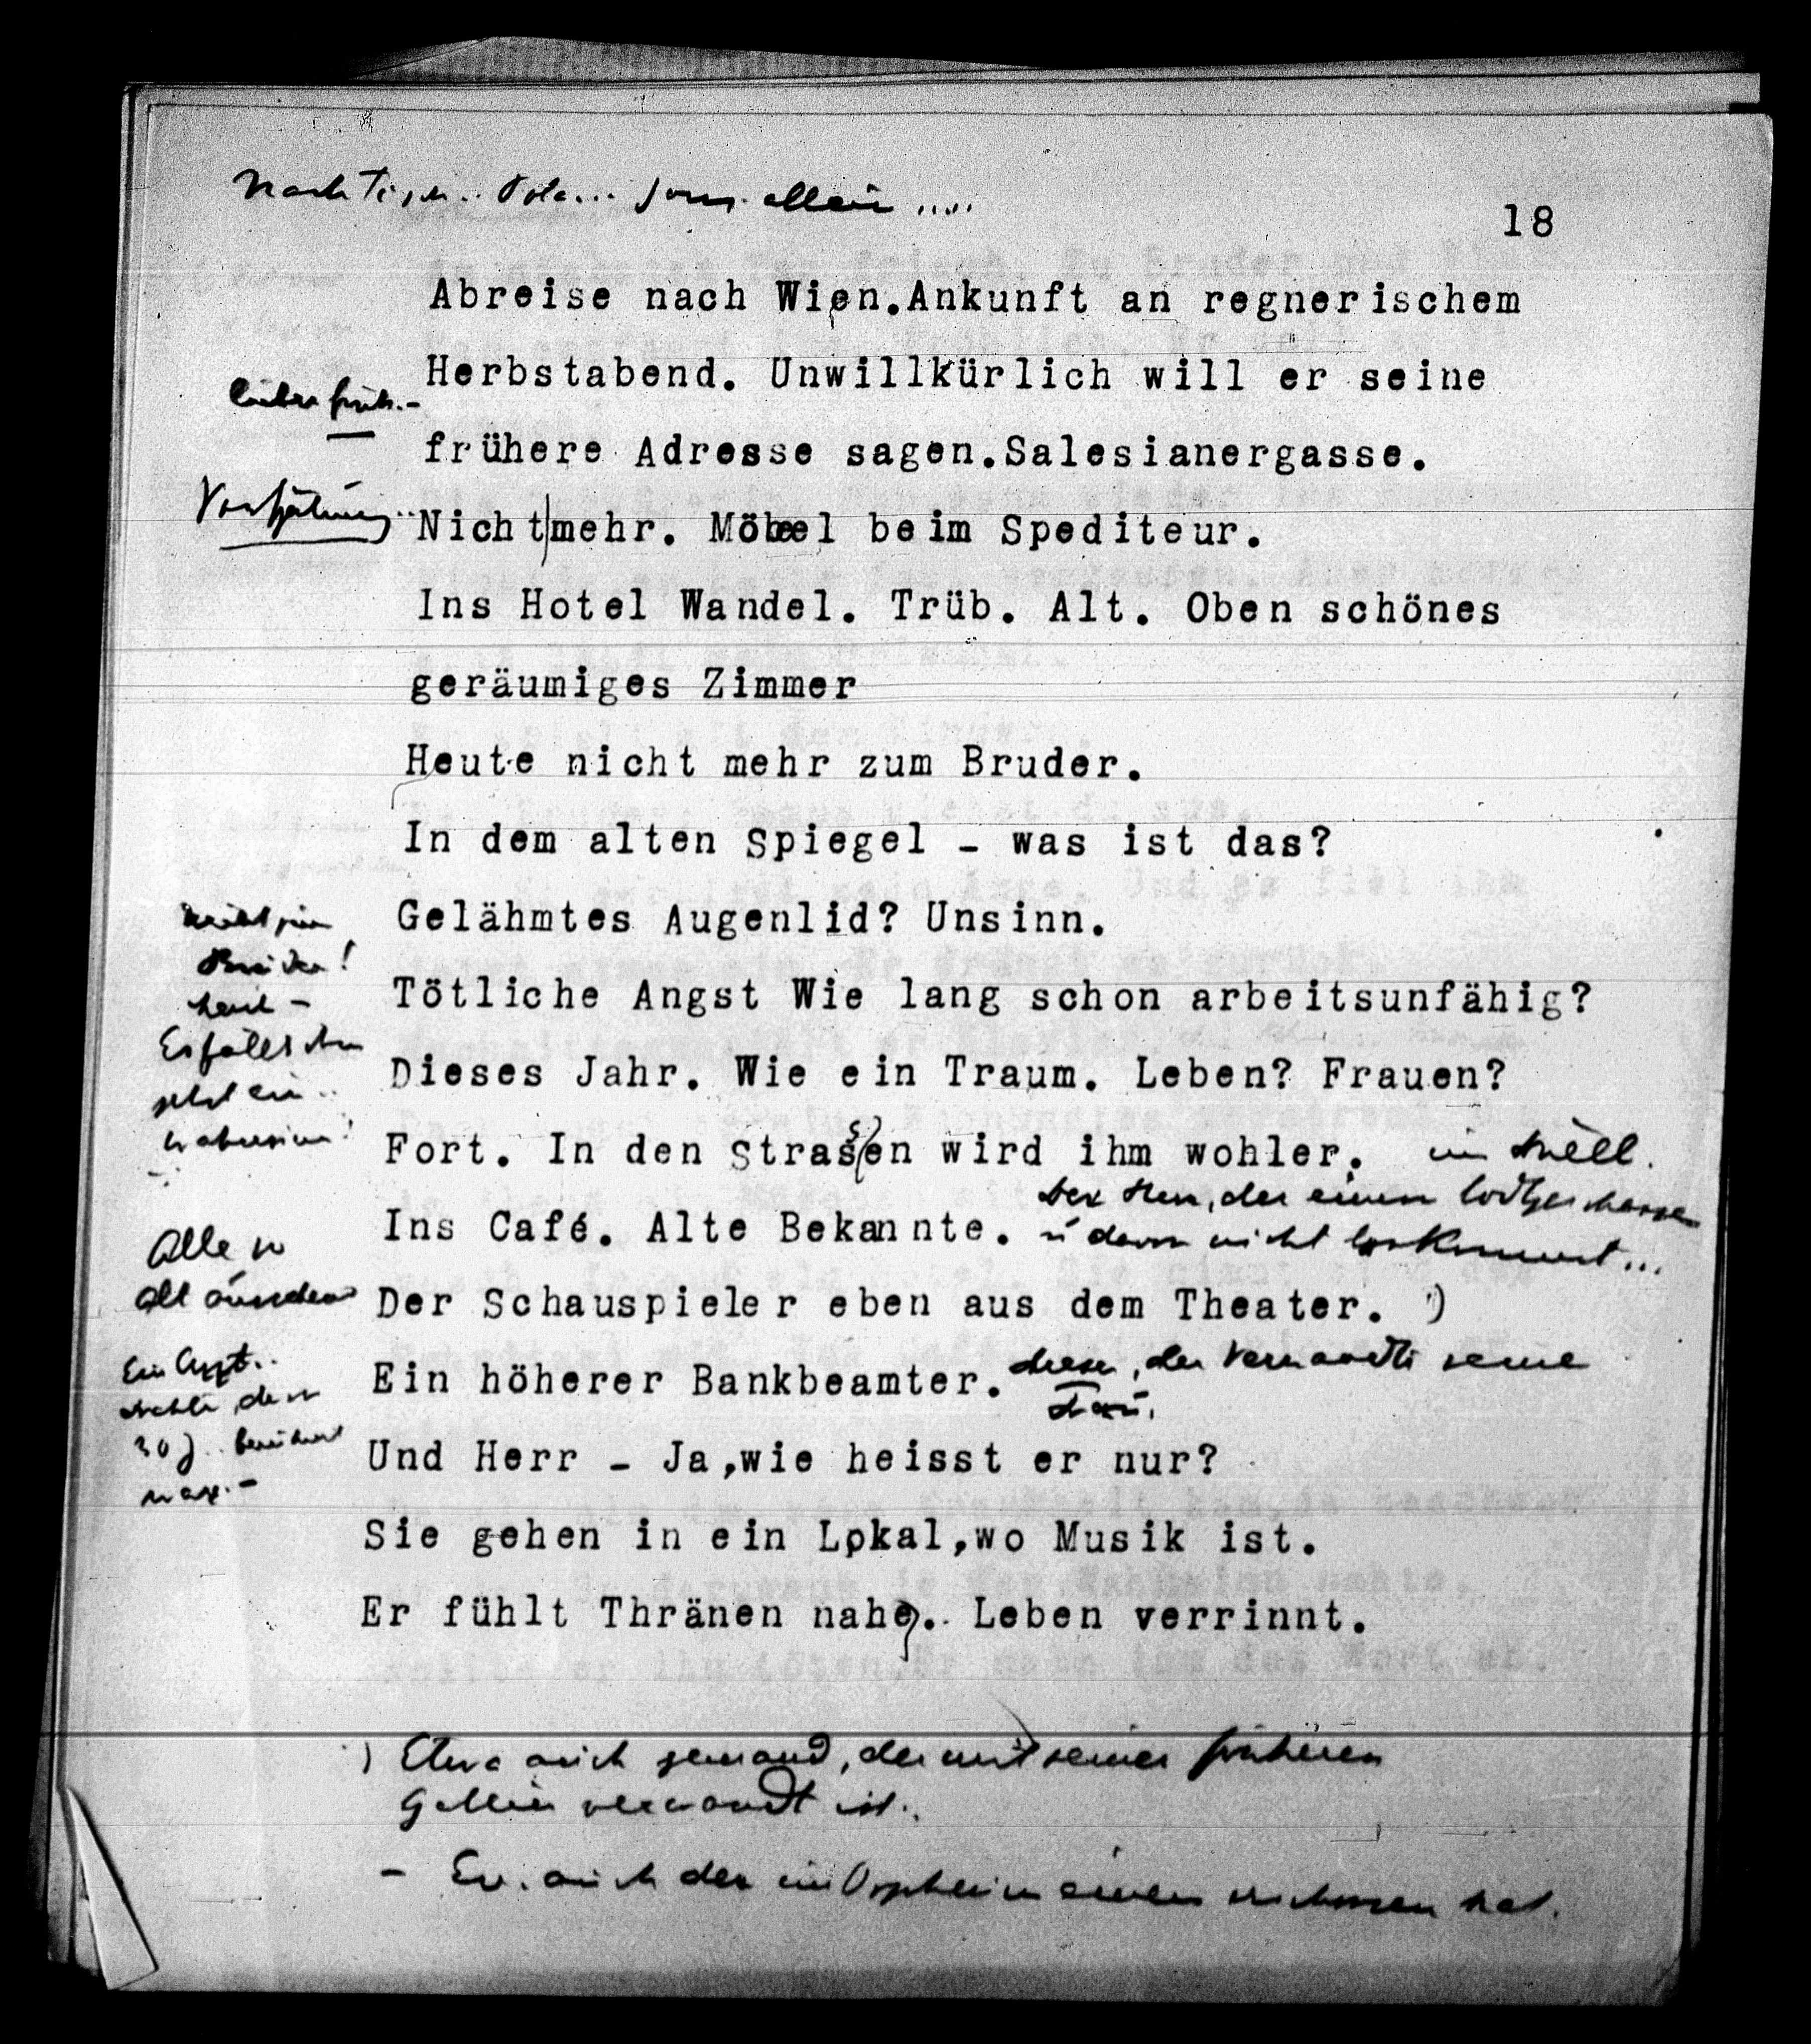 Nach Tisch..
allein ....
18
Abreise nach Wien.Ankunft an regnerischem
Herbstabend. Unwillkürlich will er seine
lieber früh.-
frühere Adresse sagen.Salesianergasse.
Verspätung..
Nicht mehr. Möbel beim Spediteur.
Ins Hotel Wandel. Trüb. Alt. Oben schönes
geräumiges Zimmer
Heute nicht mehr zum Bruder.
In dem alten Spiegel - was ist das?
Gelähmtes Augenlid? Unsinn.
nicht zum
Bruder!
heut -
Es fällt ihm
jetzt ein..
Wahnsinn!
Tötliche Angst Wie lang schon arbeitsunfähig?
Dieses Jahr. Wie ein Traum. Leben? Frauen?
Fort. In den Strassen wird ihm wohler.
Ins Café. Alte Bekannte.
im Duell.
Der Herr, der einen todtgeschossen
u dann nicht loskommt...
Alle so
alt aussehend
Der Schauspieler eben aus dem Theater. )
Ein höherer Bankbeamter.
dieser, der verwandte seine
Frau.
Ein Arzt..
der
30 J.. berühmt
war.-
Und Herr - Ja,wie heisst er nur?
Sie gehen in ein Lokal,wo Musik ist.
Er fühlt Thränen nahe. Leben verrinnt.
) Etwa auch jemand, der mit seiner früheren
Gattin verwandt ist..
- Ev. auch der im Orpheum einen erschossen hat.